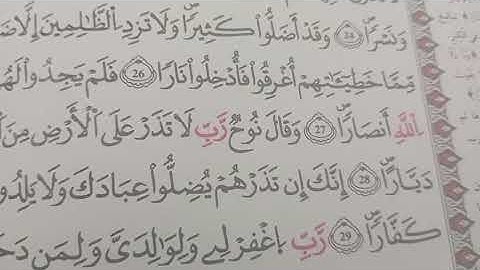 وَنَسْرًا ۝24 وَقَدْ أَضَلُّواْ كَثِيرًا وَلَا تَزِدِ اِ۬لظَّٰلِمِينَ إِلَّا
مِّمَّا خَطِيٓـَٰٔتِهِمُۥٓ أُغْرِقُواْ فَأُدْخِلُواْ نَارًا ۝26 فَلَمْ يَجِدُواْ لَهُم
اِ۬للَّهِ أَنصَارًا ۝27 وَقَالَ نُوحٌ رَّبِّ لَا تَذَرْ عَلَى اَ۬لْأَرْضِ مِنَ
دَيَّارًا ۝28 إِنَّكَ إِن تَذَرْهُمْ يُضِلُّواْ عِبَادَكَ وَلَا يَلِدُو
كَفَّارًا ۝29 رَّبِّ اِ۪غْفِرْ لِے وَلِوَٰلِدَيَّ وَلِمَن دَخَ